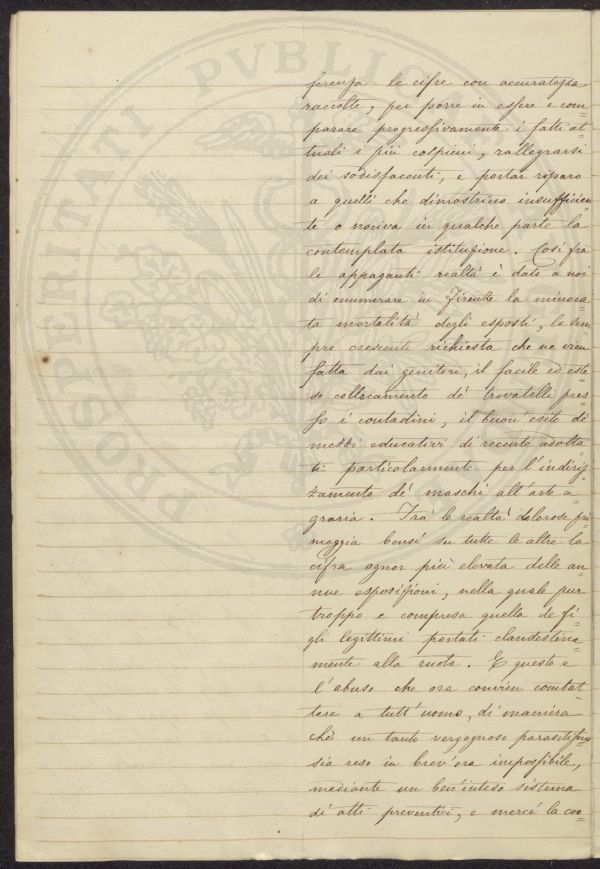 PROSPERITATI PVBLICAE
ferenza le cifre con accuratezza
raccolte, per porre in essere e com=
parare progressivamente i fatti at=
tuali i più cospicui, rallegrarsi
dei sodisfacenti, e portar riparo
a quelli che dimostrino insufficien
te o nociva in qualche parte la
contemplata istituzione. Così fra
le appaganti realtà è dato a noi
di enumerare in Firenze la minora=
ta mortalità degli esposti, la sem=
pre crescente richiesta che ne vien
fatta dai genitori, il facile ed este=
so collocamento de' trovatelli pres=
so i contadini, il buon'esito de'
mezzi educativi di recente adotta=
ti particolarmente per l'indiriz=
zamento de' maschi all'arte a=
graria. Trà le realtà dolorose pri=
meggia bensì su tutte le altre la
cifra ognor più elevata delle an=
nue esposizioni, nella quale pur
troppo e compresa quella de fi=
gli legittimi portati clandestina=
mente alla ruota. E questo e
l'abuso che ora convien combat=
tere a tutt'uomo, di maniera
chè un tanto vergognoso parasitismo
sia reso in brev'ora impossibile,
mediante un ben'inteso sistema
di atti preventivi, e mercé la coo=